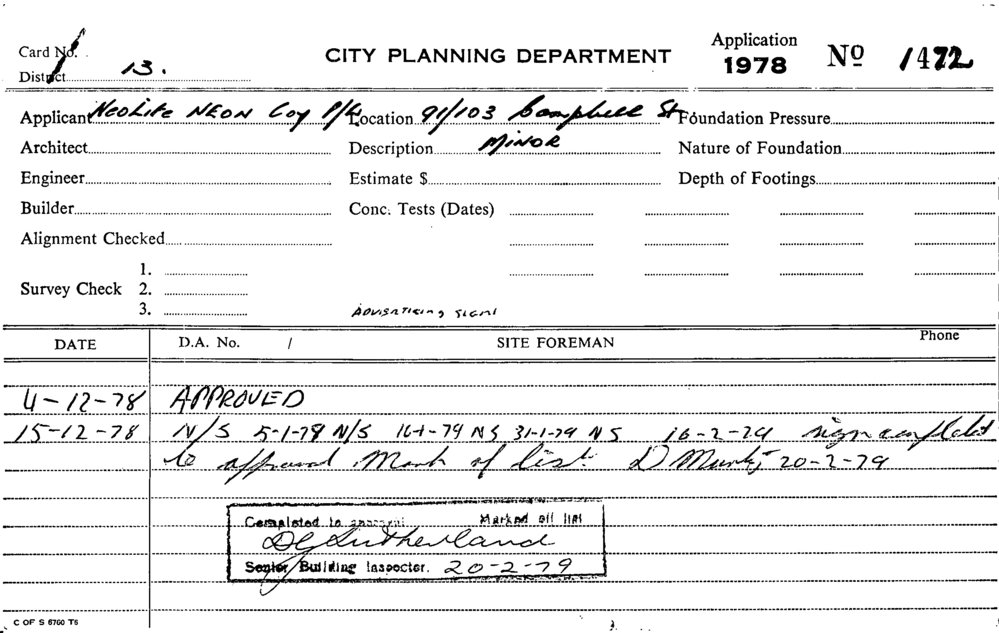 Card No.
CITY PLANNING DEPARTMENT
Application 1978 No 1472
District 13.
Applicant NEOLITE NEON Coy P/L Location 91/103 Campbell St Foundation Pressure
Architect Description MINOR Nature of Foundation
Engineer Estimate $ Depth of Footings
Builder Conc. Tests (Dates)
Alignment Checked
1.
Survey Check 2.
3.
ADVERTISING SIGN
DATE D.A. No. / SITE FOREMAN Phone
4-12-78 APPROVED
15-12-78 N/S 5-1-79 N/S 16-1-79 NS 31-1-79 NS 16-2-79 sign completed
to approval Mark of list. D 20-2-79
Completed to approval Marked off list
DG Sutherland
Senior Building Inspector. 20-2-79
C OF S 6760 T6